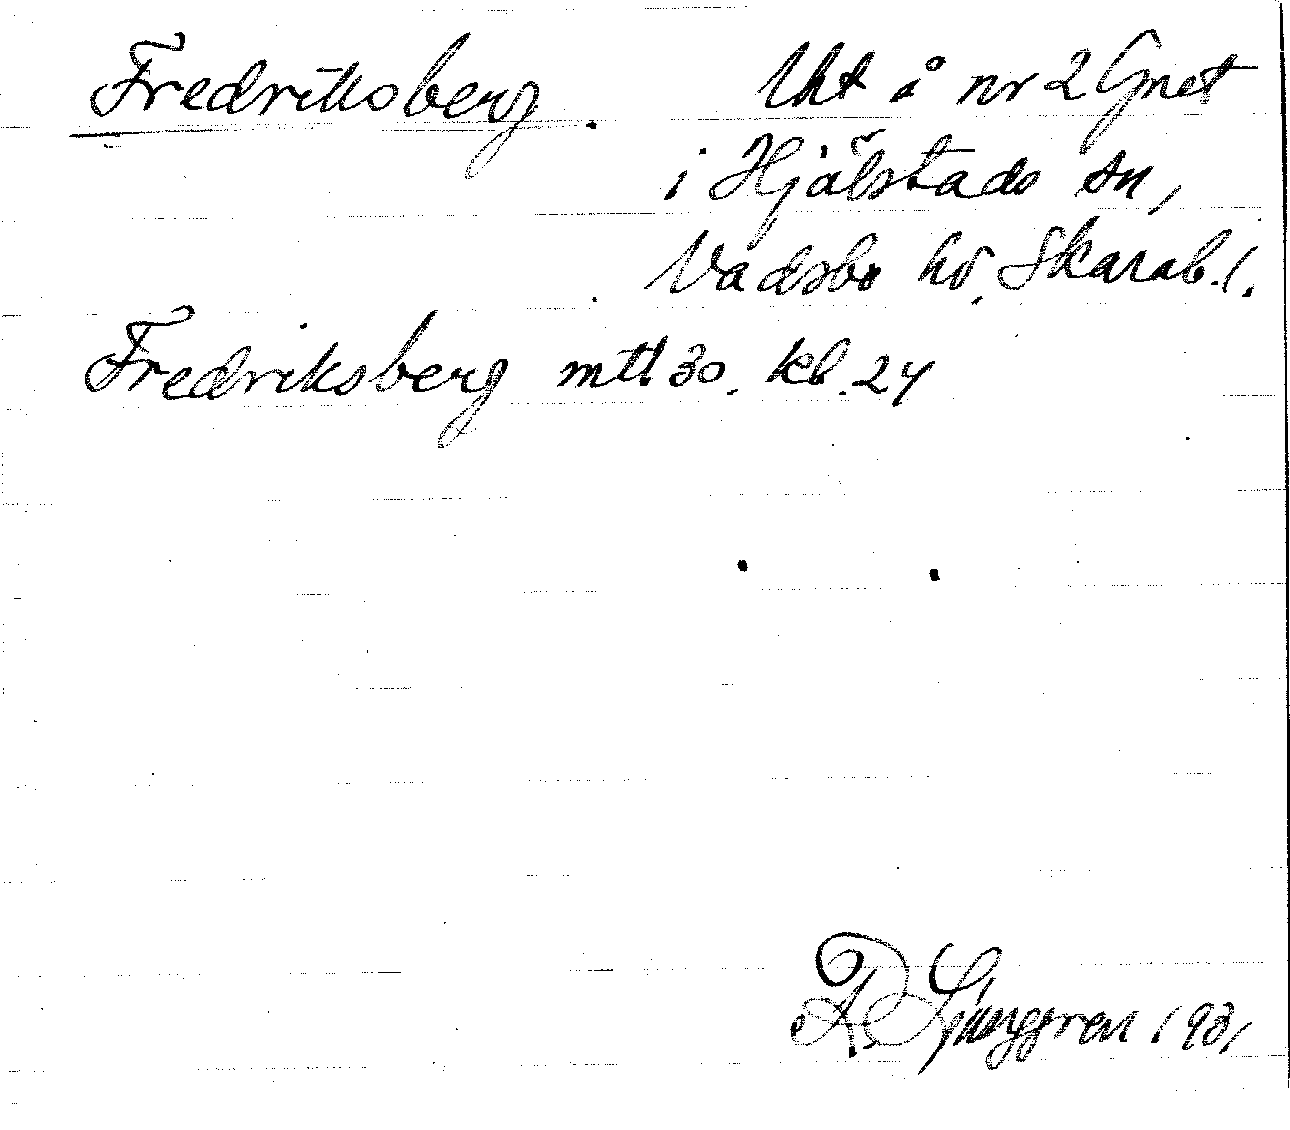 Fredriksberg. Uht å nr 2 Gnet
i Hjälstads sn,
Vadsbo hd, Skarab. l.
Fredriksberg mtl. 30. kb. 24
R. Ljunggren 1931